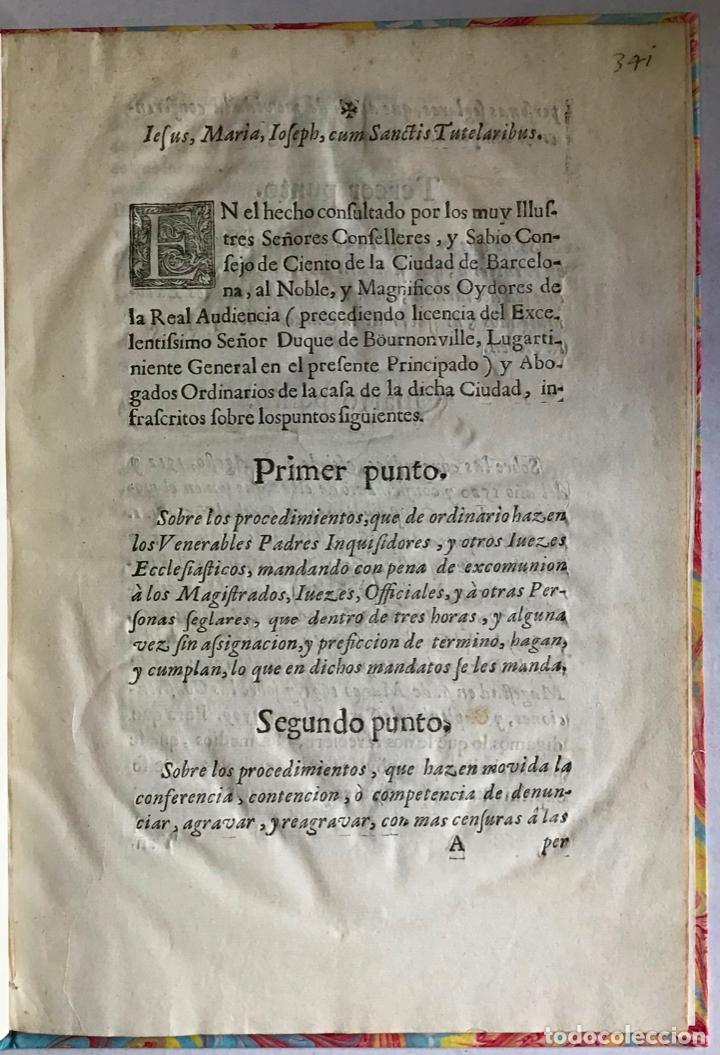 341
✠
Ieſus, Maria, Ioſeph, cum Sanctis Tutelaribus.
EN el hecho conſultado por los muy Illuſ-
tres Señores Conſelleres, y Sabio Con-
ſejo de Ciento de la Ciudad de Barcelo-
na, al Noble, y Magnificos Oydores de
la Real Audiencia ( precediendo licencia del Exce-
lentiſſimo Señor Duque de Böurnonville, Lugarti-
niente General en el preſente Principado ) y Abo-
gados Ordinarios de la caſa de la dicha Ciudad, in-
fraſcritos ſobre lospuntos ſiguientes.
Primer punto.
Sobre los procedimientos, que de ordinario hazen
los Venerables Padres Inquiſidores, y otros Iuezes
Eccleſiaſticos, mandando con pena de excomunion
à los Magiſtrados, Iuezes, Officiales, y à otras Per-
ſonas ſeglares, que dentro de tres horas, y alguna
vez ſin aſsignacion, y preficcion de termino, hagan,
y cumplan, lo que en dichos mandatos ſe les manda.
Segundo punto.
Sobre los procedimientos, que hazen movida la
conferencia, contencion, ò competencia de denun-
ciar, agravar, y reagravar, con mas cenſuras â las
A per
todocoleccion